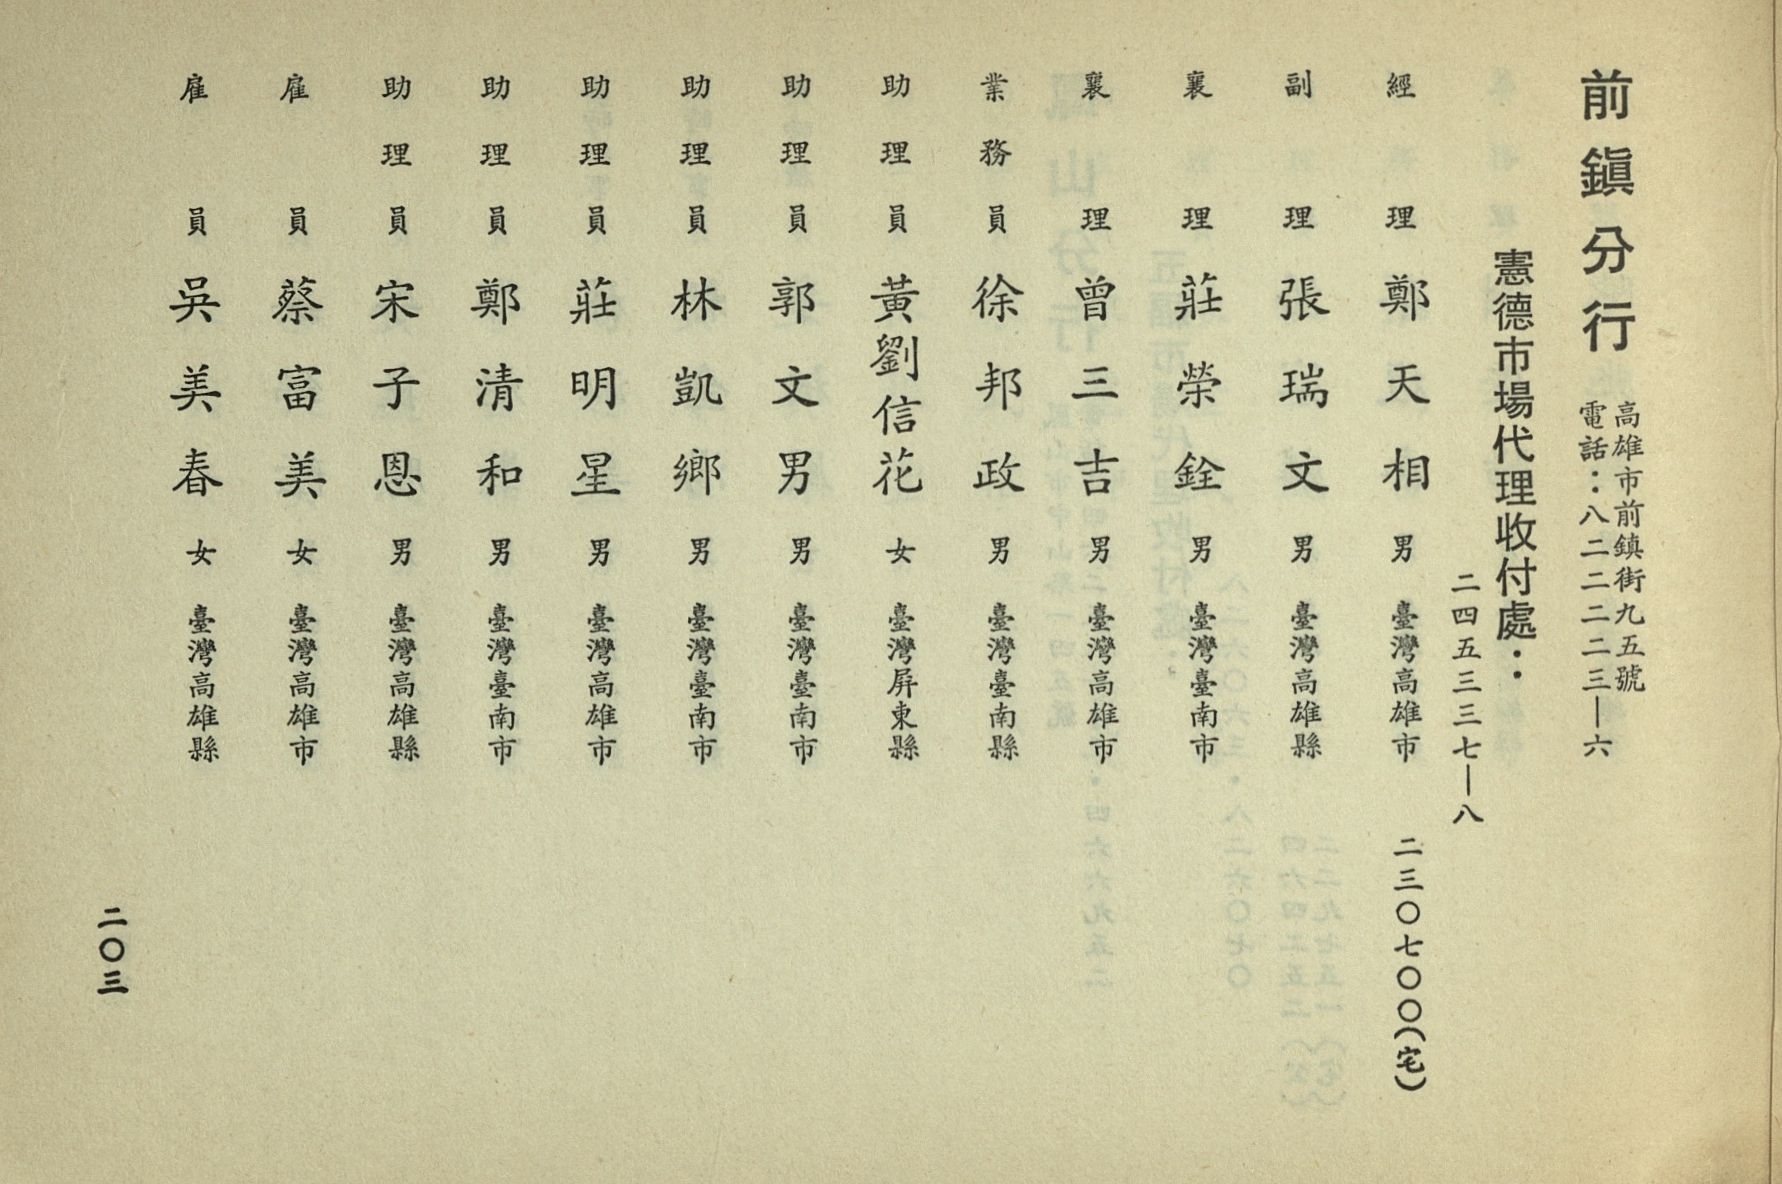 前鎮分行
高雄市前鎮街九五號
電話：八二二二二三—六
憲德市場代理收付處：
二四五三三七—八
經理 鄭天相 男 臺灣高雄市 二三〇七〇〇(宅)
副理 張瑞文 男 臺灣高雄縣
襄理 莊榮銓 男 臺灣臺南市
襄理 曾三吉 男 臺灣高雄市
業務員 徐邦政 男 臺灣臺南縣
助理員 黃劉信花 女 臺灣屏東縣
助理員 郭文男 男 臺灣臺南市
助理員 林凱鄉 男 臺灣臺南市
助理員 莊明星 男 臺灣高雄市
助理員 鄭清和 男 臺灣臺南市
助理員 宋子恩 男 臺灣高雄縣
雇員 蔡富美 女 臺灣高雄市
雇員 吳美春 女 臺灣高雄縣
二〇三